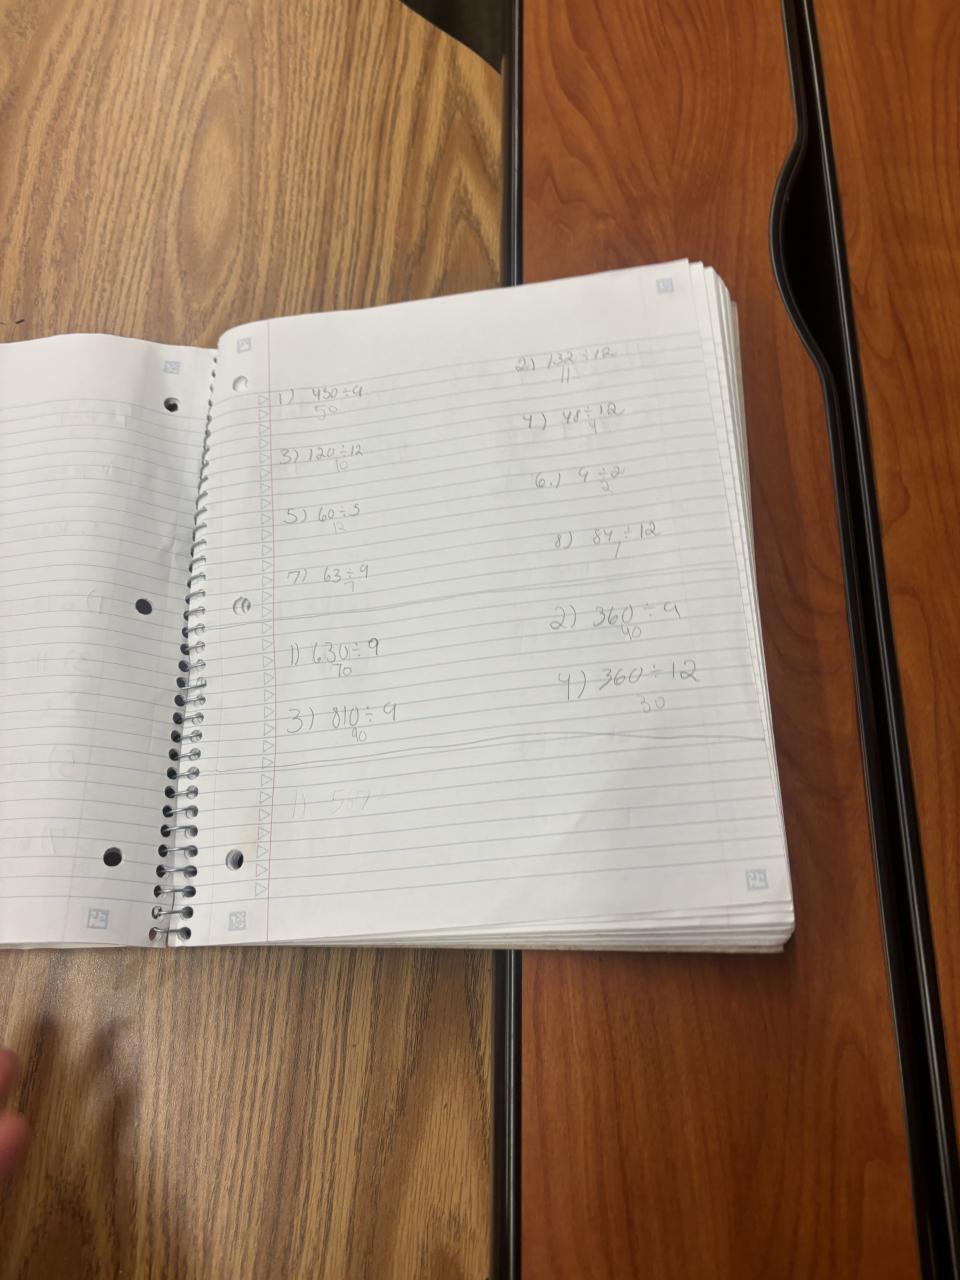 1) 450÷9
50
2.) 132÷12
11
3) 120÷12
10
4) 48÷12
4
5) 60÷5
12
6.) 4÷2
2
7) 63÷9
7
8) 84÷12
7
1) 630÷9
70
2) 360÷9
40
3) 810÷9
90
4) 360÷12
30
1)